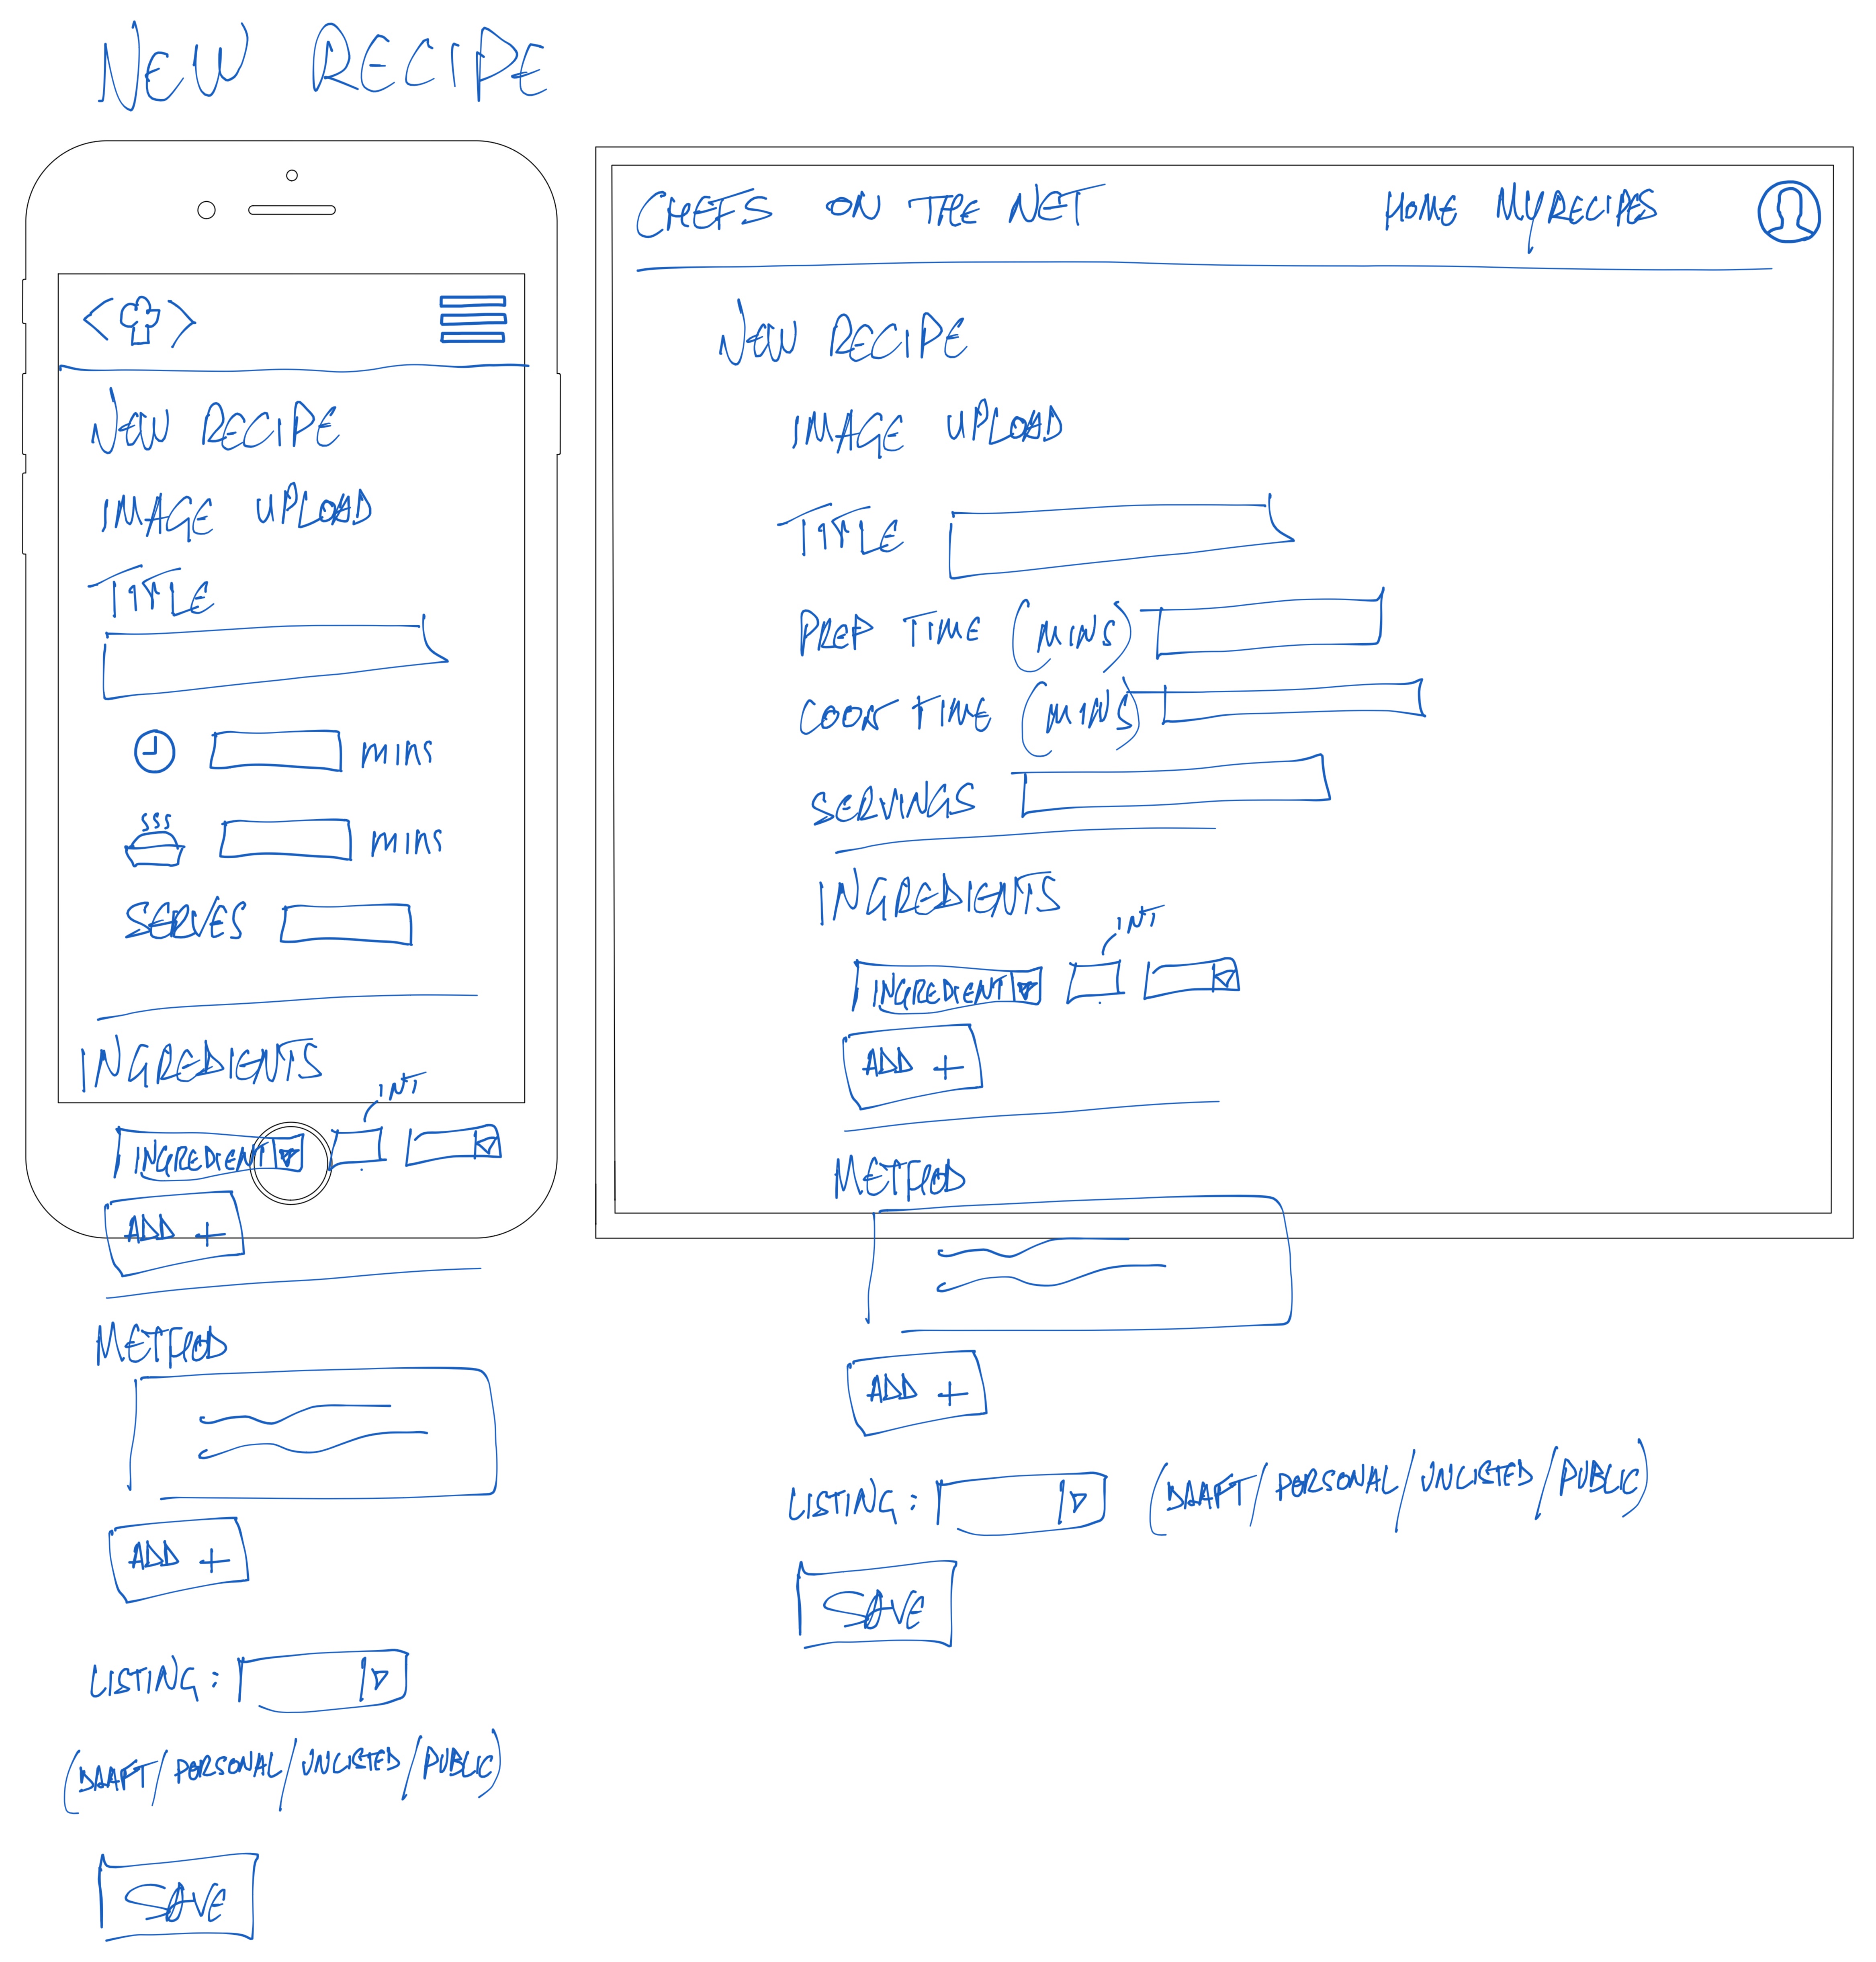 NEW RECIPE
NEW RECIPE
IMAGE UPLOAD
TITLE
mins
mins
SERVES
INGREDIENTS
INT
INGREDIENT
ADD +
METHOD
ADD +
LISTING:
(DRAFT/PERSONAL/UNLISTED/PUBLIC)
SAVE
CHEFS ON THE NET HOME MY RECIPES
NEW RECIPE
IMAGE UPLOAD
TITLE
PREP TIME (MINS)
COOK TIME (MINS)
SERVINGS
INGREDIENTS
INT
INGREDIENT
ADD +
METHOD
ADD +
LISTING: (DRAFT/PERSONAL/UNLISTED/PUBLIC)
SAVE